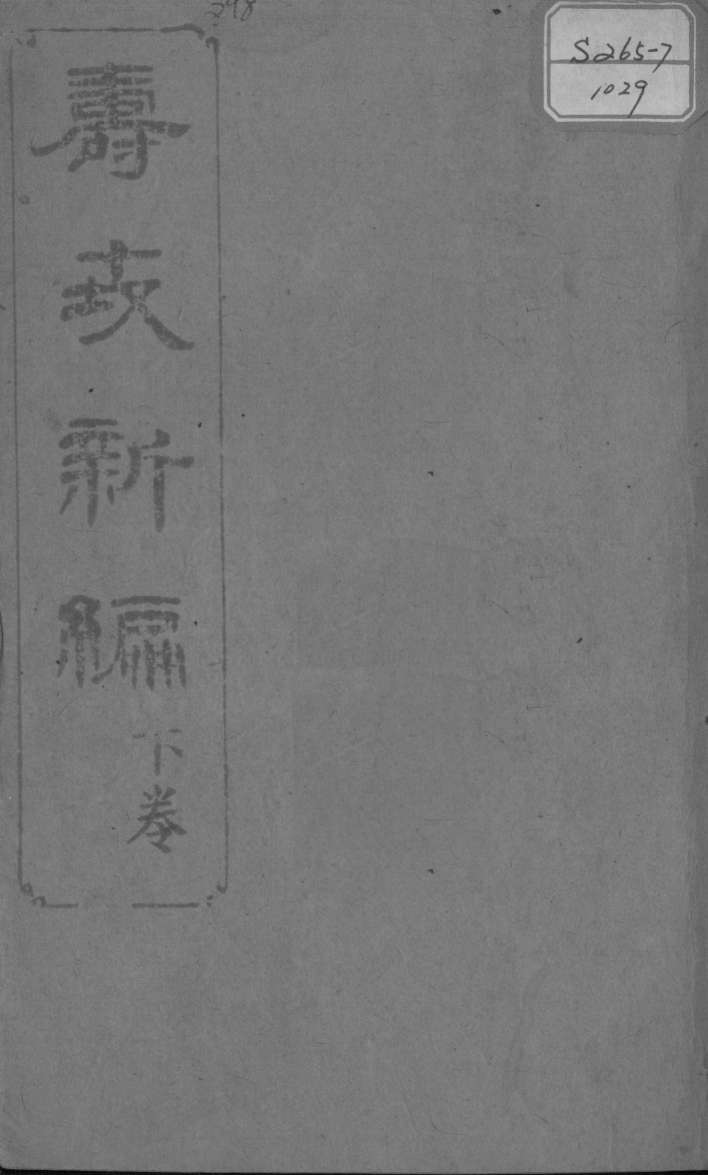 298
S265-7
1029
壽世新編
下卷